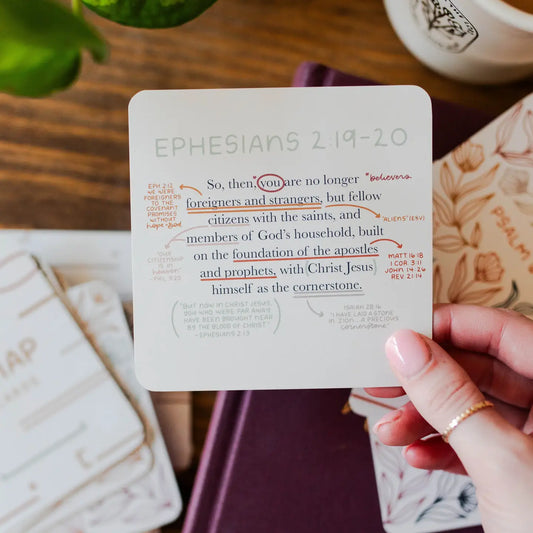 EPHESIANS 2:19-20
So, then, you are no longer
*believers
foreigners and strangers, but fellow
citizens with the saints, and
members of God's household, built
on the foundation of the apostles
and prophets, with Christ Jesus
himself as the cornerstone.
EPH 2:12
WE WERE
FOREIGNERS
TO THE
COVENANT
PROMISES
WITHOUT
hope + God
"ALIENS" (ESV)
"OUR
CITIZENSHIP
IS IN
heaven"
- PHIL 3:20
MATT 16:18
1 COR 3:11
JOHN 14:26
REV 21:14
"BUT NOW IN CHRIST JESUS,
YOU WHO WERE FAR AWAY
HAVE BEEN BROUGHT NEAR
BY THE BLOOD OF CHRIST"
-EPHESIANS 2:13
ISAIAH 28:16
"I HAVE LAID A STONE
IN ZION... A PRECIOUS
cornerstone"
PSALM
MAP
CARDS